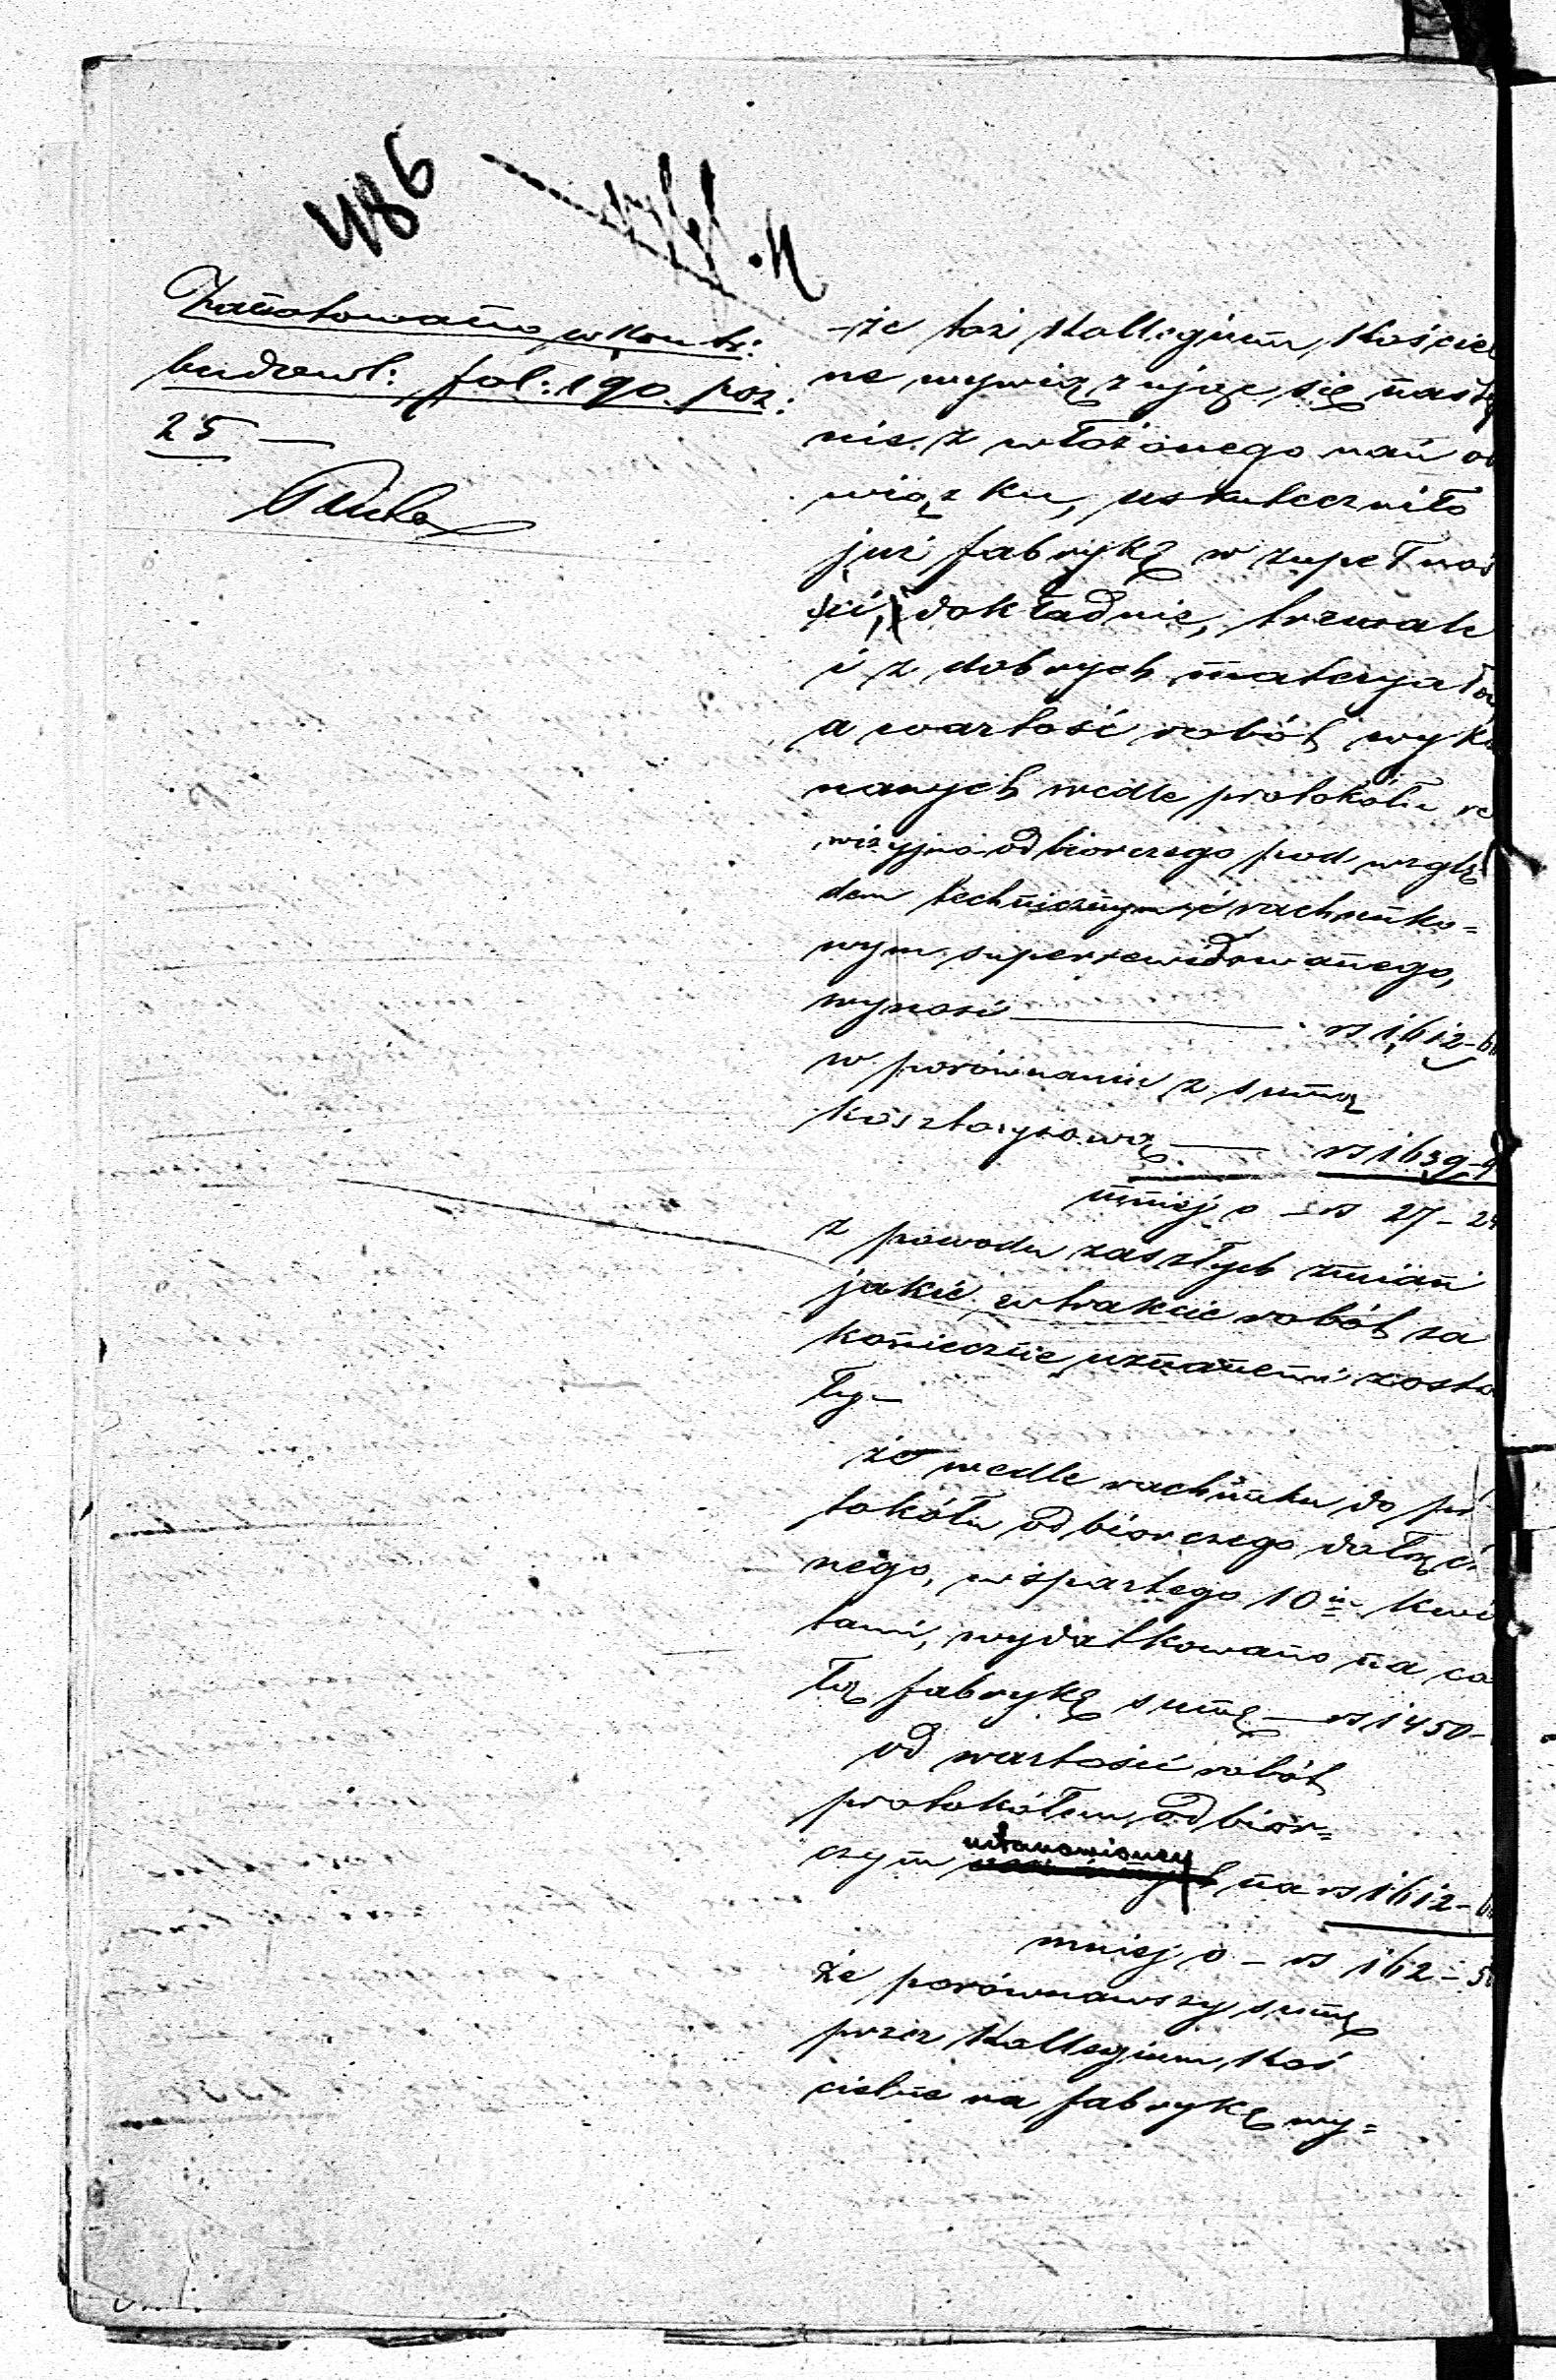 486
Zanotowano w kontr:
budowl: fol: 190. poz:
25 —
-że toż Kollegium Kościel
ne wywiązując się nastę
nie z włożonego nań ob
wiązku, uskuteczniło
już fabrykę w zupełnoś
ci, dokładnie, trwale
i z dobrych materyałów
a wartość robót wyko
nanych wedle protokółu re
wizyjno-odbiorczego pod wzglę
dem technicznym i rachunko=
wym superrewidowanego,
wynosi — rs 1612-6
w porównaniu z summą
kosztorysową — rs 1639-9
mniej o — rs 27-2
z powodu zaszłych zmian
jakie w trakcie robót za
konieczne uznanemi zosta
ły—
że wedle rachunku do pro
tokółu odbiorczego dołączo
nego, wspartego 10iu kwi
tami, wydatkowano na ca
łą fabrykę summę — rs 1450-
od wartości robót
protokółem odbior=
czym ustanowioney na rs 1612-6
mniej o — rs 162-5
że porównawszy summę
przez Kollegium Koś
cielne na fabrykę wy=